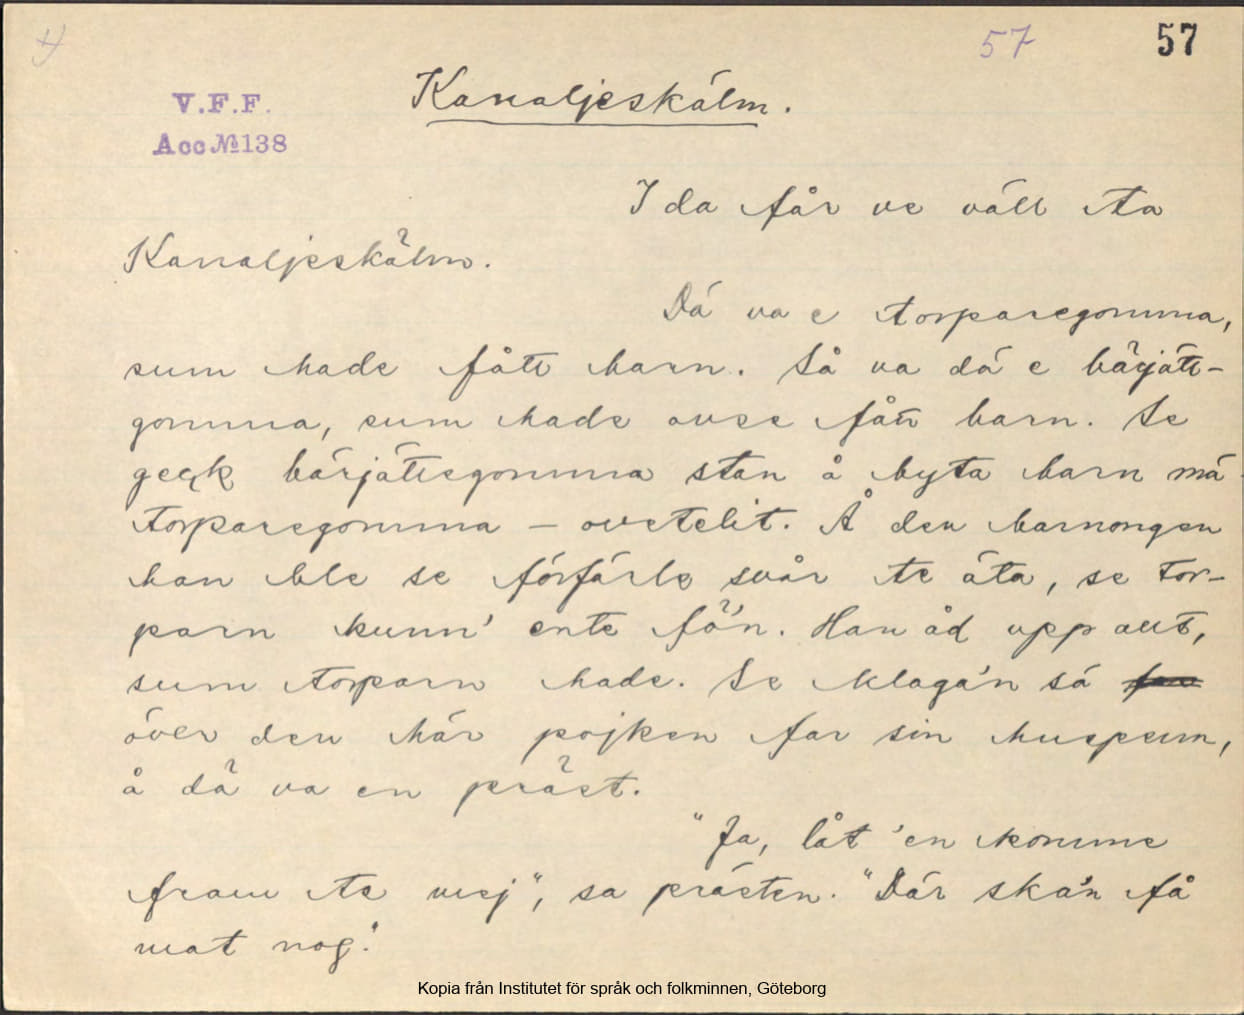 4)
57
57
V.F.F.
Acc № 138
Kanaljeskälm.
I da får ve väll ta
Kanaljeskälm.
Dä va e torparegomma,
sum hade fått barn. Så va dä e bärjätt-
gomma, sum hade ouse fått barn. Se
geck bärjättegomma stan å byta barn mä
torparegomma — ovetelit. Å den barnongen
han ble se förfärle svår te äta, se tor-
parn kunn' ente fö'n. Han åd upp allt,
sum torparn hade. Se klaga'n så
över den här pojken far sin huspeum,
å dä va en präst.
"Ja, låt 'en komme
fram te mej", sa prästen. "Där ska'n få
mat nog."
Kopia från Institutet för språk och folkminnen, Göteborg